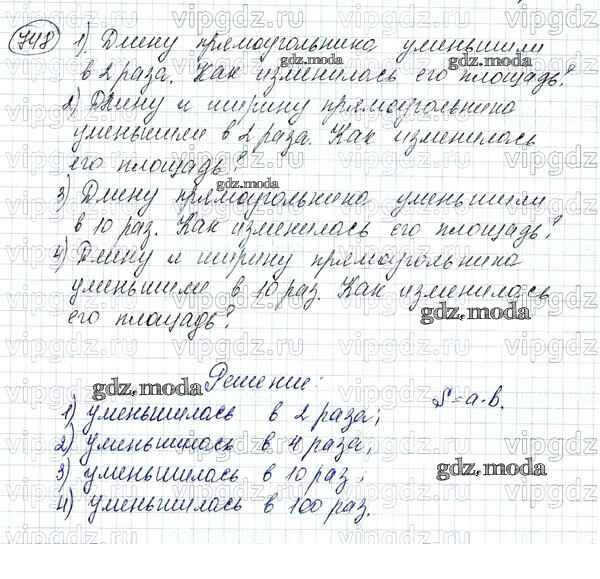 748 1) Длину прямоугольника уменьшили
в 2 раза. Как изменилась его площадь?
2) Длину и ширину прямоугольника
уменьшили в 2 раза. Как изменилась
его площадь?
3) Длину прямоугольника уменьшили
в 10 раз. Как изменилась его площадь?
4) Длину и ширину прямоугольника
уменьшили в 10 раз. Как изменилась
его площадь?
gdz.moda
gdz.moda
gdz.moda
Решение:
gdz.moda
1) уменьшилась в 2 раза; S=a·b.
2) уменьшилась в 4 раза;
3) уменьшилась в 10 раз;
gdz.moda
4) уменьшилась в 100 раз.
vipgdz.com